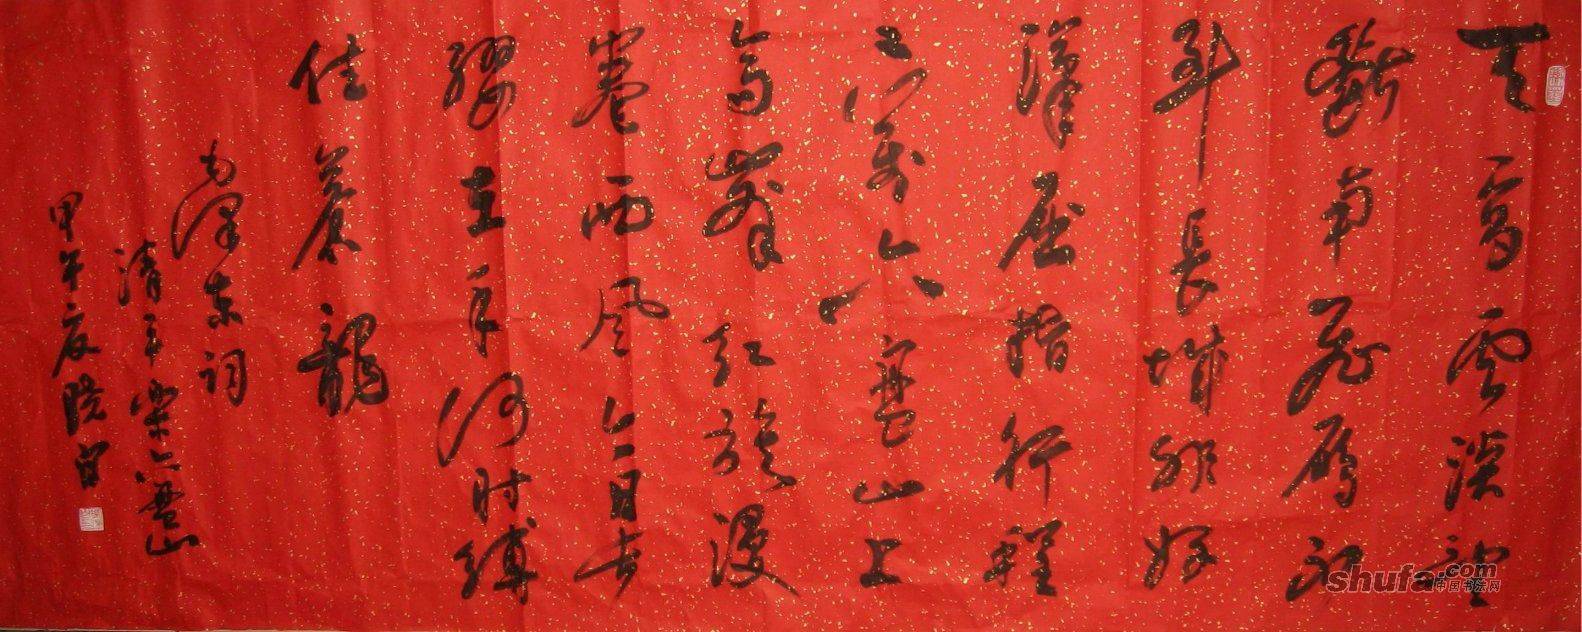 天高雲淡望
斷南飛雁不
到長城非好
漢屈指行程
二万六盘山上
高峰红旗漫
卷西风今日长
缨在手何时缚
住蒼龍
毛泽东词
清平乐六盘山
甲午夏晓
shufa.com
中国书法网